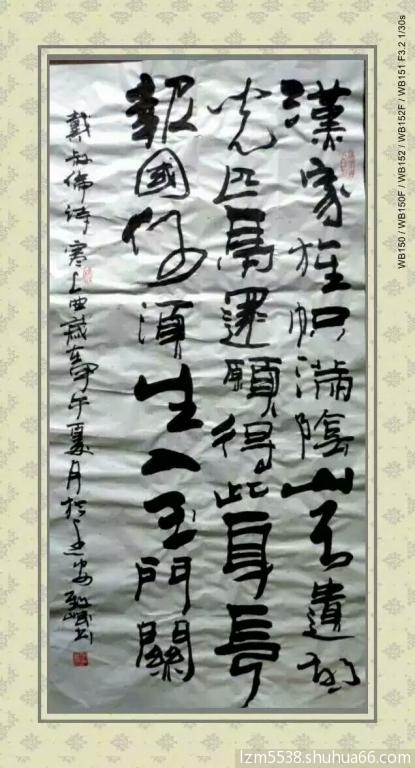 漢家旌幟滿陰山不遣胡
兒匹馬還願得此身長
報國何須生入玉門關
戴叔倫詩塞上曲歲在甲午夏月於
WB150 / WB150F / WB152 / WB152F / WB151 F3.2 1/30s
lzm5538.shuhua66.com